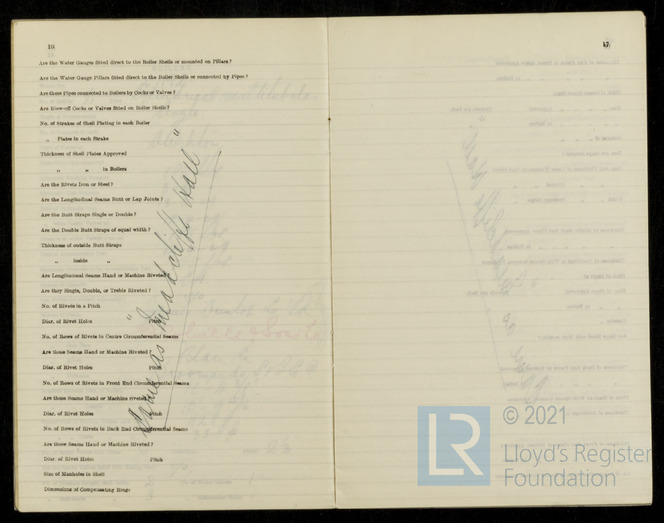 16
Are the Water Gauges fitted direct to the Boiler Shells or mounted on Pillars?
Are the Water Gauge Pillars fitted direct to the Boiler Shells or connected by Pipes?
Are these Pipes connected to Boilers by Cocks or Valves?
Are Blow-off Cocks or Valves fitted on Boiler Shells?
No. of Strakes of Shell Plating in each Boiler
„ Plates in each Strake
Thickness of Shell Plates Approved
„ „ in Boilers
Are the Rivets Iron or Steel?
Are the Longitudinal Seams Butt or Lap Joints?
Are the Butt Straps Single or Double?
Are the Double Butt Straps of equal width?
Thickness of outside Butt Straps
„ inside „
Are Longitudinal Seams Hand or Machine Riveted?
Are they Single, Double, or Treble Riveted?
No. of Rivets in a Pitch
Diar. of Rivet Holes Pitch
No. of Rows of Rivets in Centre Circumferential Seams
Are these Seams Hand or Machine Riveted?
Diar. of Rivet Holes Pitch
No. of Rows of Rivets in Front End Circumferential Seams
Are these Seams Hand or Machine riveted?
Diar. of Rivet Holes Pitch
No. of Rows of Rivets in Back End Circumferential Seams
Are these Seams Hand or Machine Riveted?
Diar. of Rivet Holes Pitch
Size of Manholes in Shell
Dimensions of Compensating Rings
Same as
17
LR © 2021
Lloyd's Register
Foundation